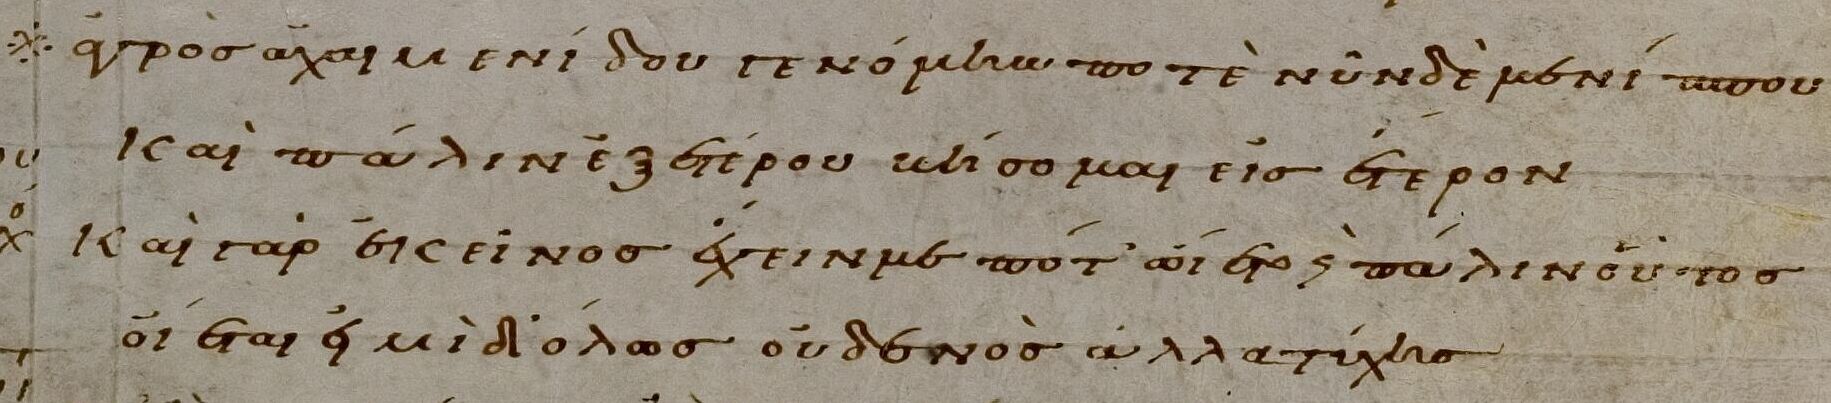 ἀγρὸσ ἀχαιμενίδου γενόμην ποτὲ νῦν δὲ μενίππου
καὶ πάλιν ἐξ ἑτέρου βήσομαι εἰσ ἕτερον
καὶ γὰρ ἐκεῖνοσ ἔχειν με πότ' ὤιετο ϗ πάλιν οὗτοσ
οἴεται εἰμὶ δ' ὅλωσ οὐδενὸσ ἀλλα τύχησ